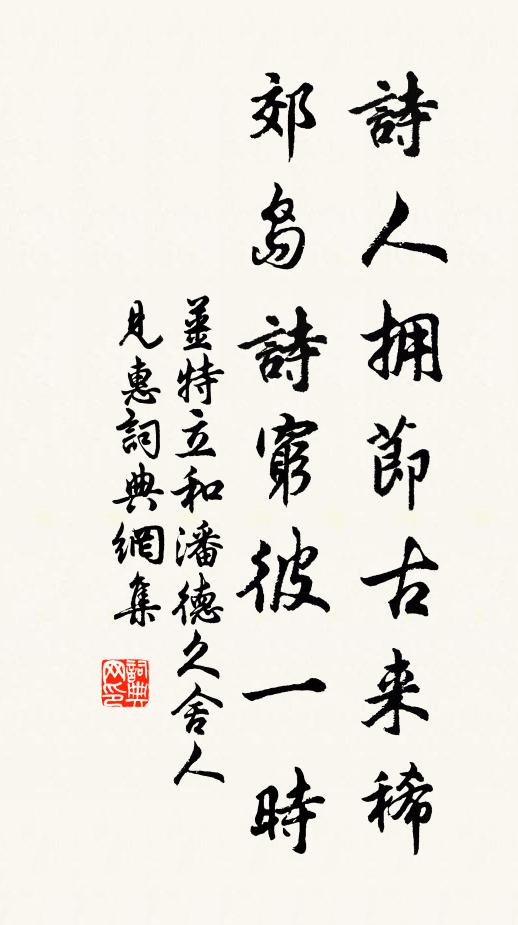 詩人拥節古来稀
郊島詩窮彼一時
姜特立和潘德久舍人
見惠詞典網集
詞典网印